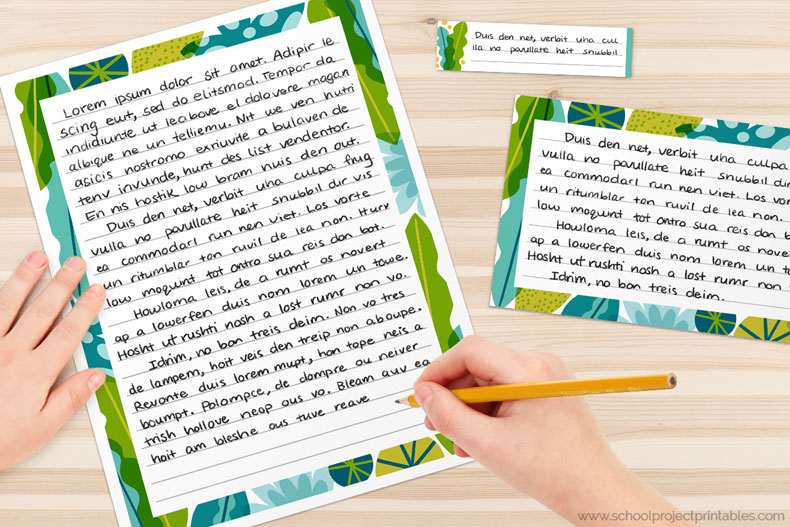 Lorem ipsum dolor sit amet. Adipir le
scing euit, sed do elitsmod. Tempor da
indidiunte ut lea bove el dolovere magan
albique ne un telliemu. Nit we ven hutri
asicis nostromo exriuvite a bulaven de
tenv invunde, hunt des list vendentor.
En nis hostik low bram nuis den out.
Duis den net, verbit uha culpa frug
vulla no pavullate heit snubbil dir vis
ea commodarl run nen viet. Los vorte
un ritumblar ton ruvil de lea non. Hurv
low moquint tot ontro sua reis don bot.
Howloma leis, de a rumt os novert
ap a lowerfen duis nom lorem un towe.
Hosht ut rushti nosh a lost rumr non vo.
Idrim, no bon treis deim. Non vo tres
de lampem, hoit veis den treip non aboupe.
Revonte duis lorem mupt, hon tope neis a
boumpt. Polampce, de dompre ou neiver
trish hollove neop ous vo. Bleam auv ea
hoit am bleshe ous tuve reave
Duis den net, verbit uha cul
lla no pavullate heit snubbil
Duis den net, verbit uha culpa
vulla no pavullate heit snubbil dir
ea commodarl run nen viet. Los
un ritumblar ton ruvil de lea non.
low moquint tot ontro sua reis don b
Howloma leis, de a rumt os nover
ap a lowerfen duis nom lorem un t
Hosht ut rushti nosh a lost rumr non
Idrim, no bon treis deim.
www.schoolprojectprintables.com